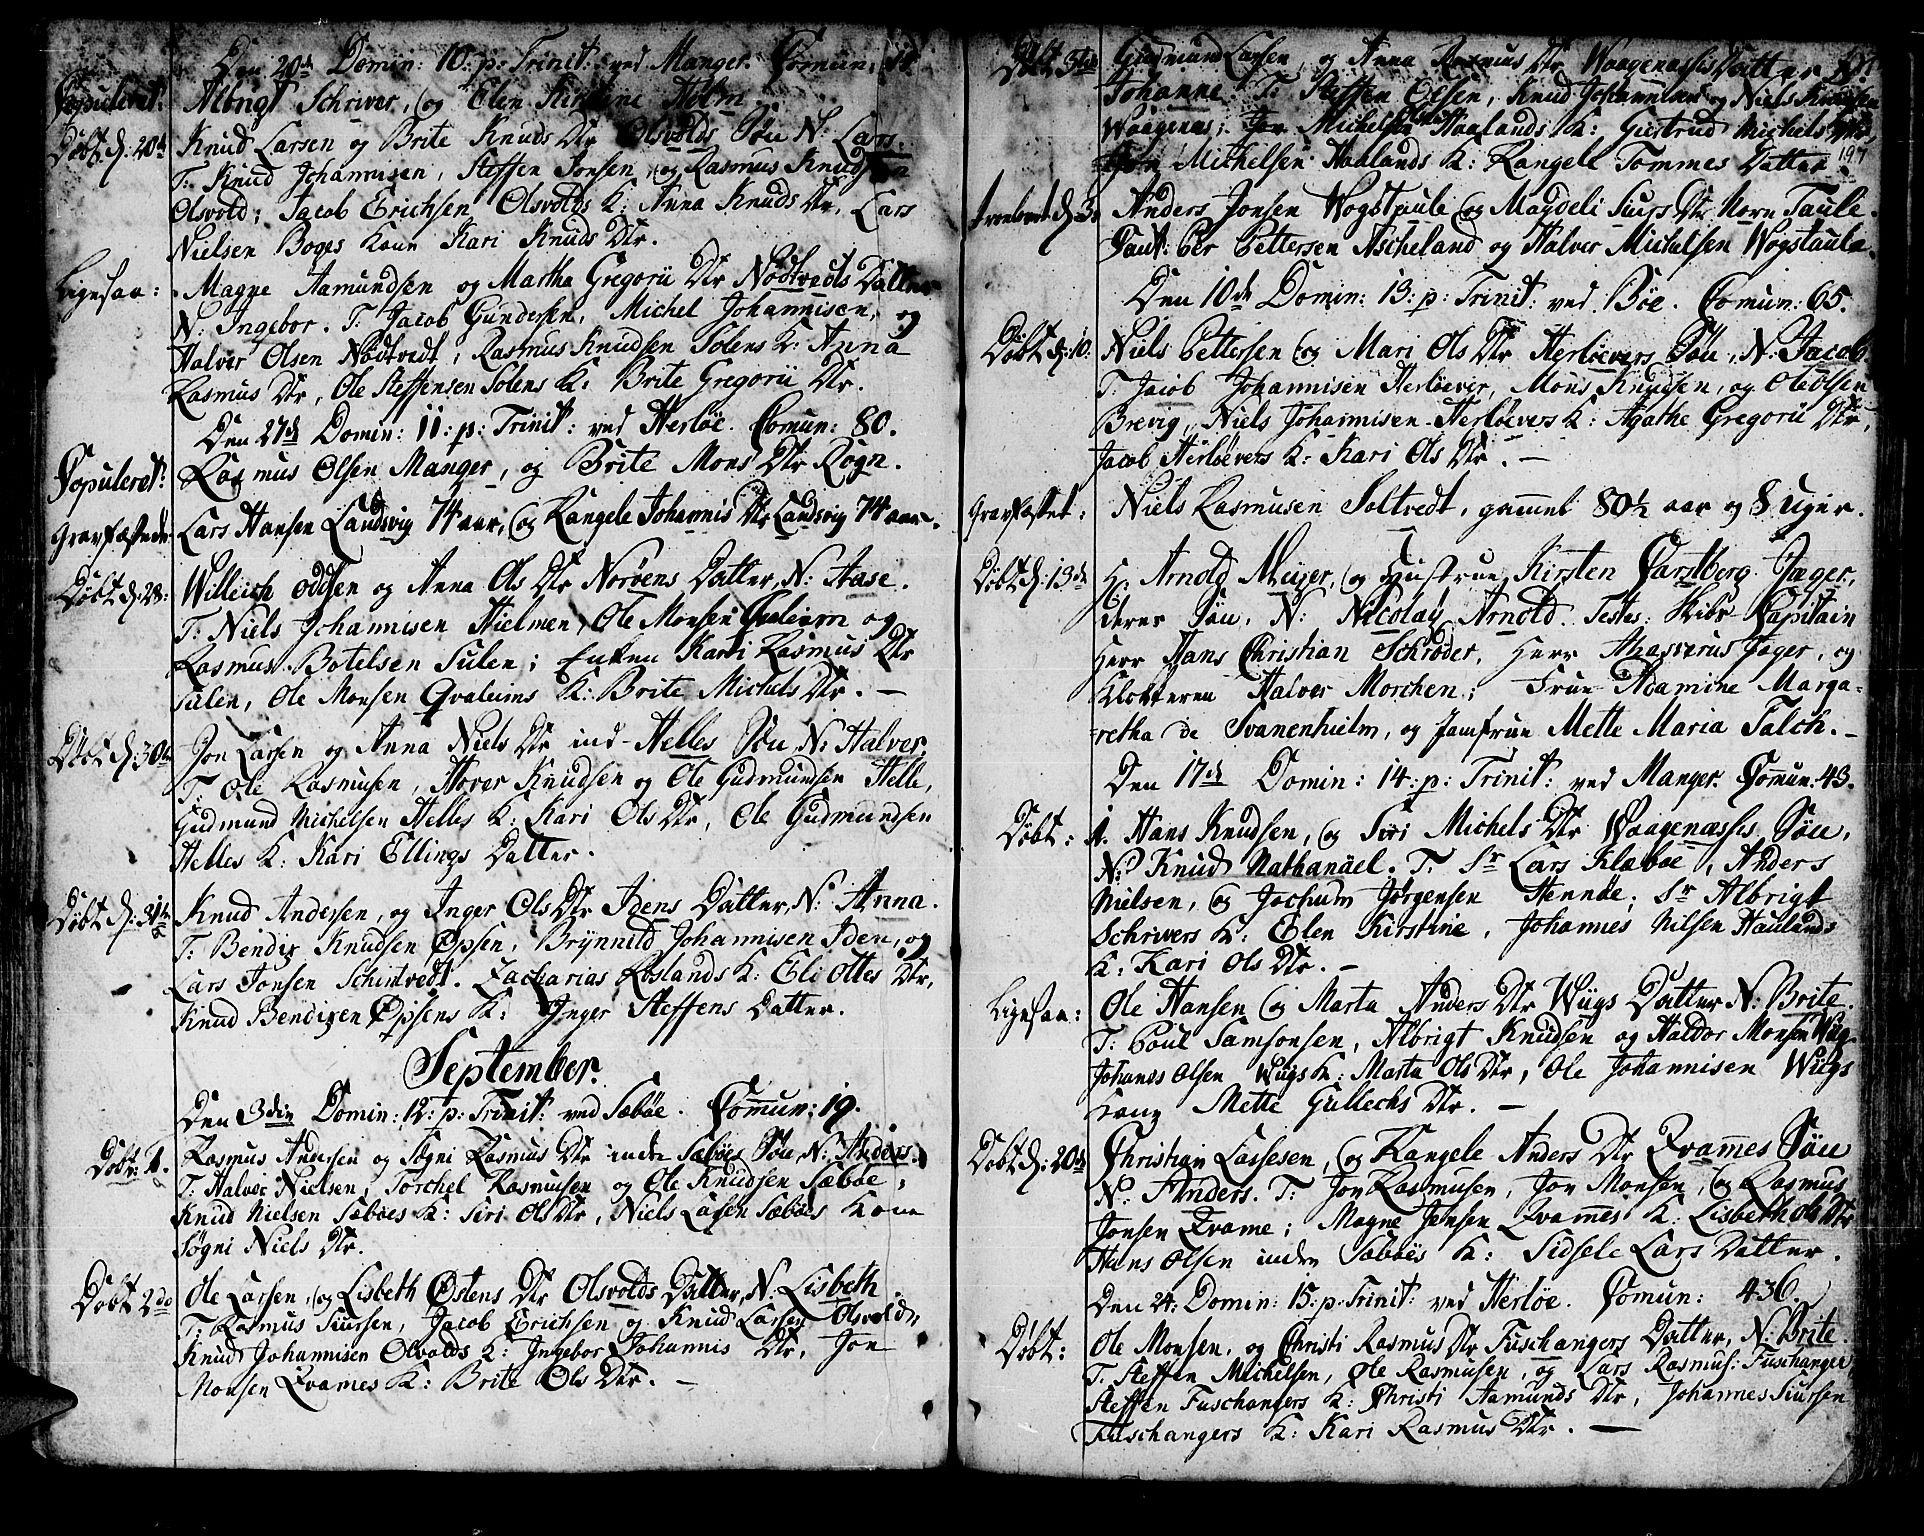 Den 20de Domin: 10: p: Trinit: ved Manger. Comun:
Copuleret: Albrigt Schriver, og Elen Kirstine Holm.
Döbt d: 20de Knud Larsen og Brite Knuds Dtr Olsvolds Søn N: Lars.
T: Knud Johannisen, Steffen Jonsen, og Rasmus Knudsen
Olsvold; Jacob Erichsen Olsvolds K: Anna Knuds Dtr, Lars
Nielsen Boges Kone Kari Knuds Dtr.
Ligesaa: Magne Aamundsen og Martha Gregorii Dtr Nødtvedts Datter
N: Ingebor. T: Jacob Gundersen, Michel Johannisen, og
Halver Olsen Nødtvedt, Rasmus Knudsen Solens K: Anna
Rasmus Dtr, Ole Steffensen Solens K: Brite Gregorii Dtr.
Den 27de Domin: 11: p: Trinit: ved Herløe. Comun: 80.
Copuleret: Rasmus Olsen Manger, og Brite Mons Dtr Rogn.
Gravfæstede Lars Hansen Landsvig 74 aar, og Rangele Johannis Dtr Landsvig 74 aar.
Döbt d: 28: Willeich Oddsen og Anna Ols Dtr Norvens Datter, N: Aase.
T: Niels Johannisen Hielmen, Ole Monsen Qvaleim og
Rasmus Botelsen Sulen; Enken Kari Rasmus Dtr
Sulen, Ole Monsen Qvaleims K: Brite Michels Dtr. —
Döbt d: 30te Jon Larsen og Anna Niels Dtr ind-Helles Søn, N: Halver.
T: Ole Rasmusen, Haver Knudsen og Ole Gudmundsen Helle,
Gudmund Michelsen Helles K: Kari Ols Dtr, Ole Gudmundsen
Helles K: Kari Ellings Datter.
Döbt d: 31te Knud Andersen, og Inger Ols Dtr Idens Datter, N: Anna.
T: Bendix Knudsen Øpsen, Brynnild Johannisen Iden, og
Lars Jonsen Schintvedt. Zacharias Roslands K: Eli Ottes Dtr,
Knud Bendixen Øpsens K: Inger Steffens Datter.
September.
Den 3die Domin: 12: p: Trinit: ved Sæbøe. Comun: 19.
Döbt: 1. Rasmus Andersen og Søgni Rasmus Dtr indre Sæbøes Søn, N: Anders.
T: Halver Nielsen, Torchel Rasmusen og Ole Knudsen Sæbøe,
Knud Nielsen Sæbøes K: Siri Ols Dtr, Niels Larsen Sæbøes Kone
Søgni Niels Dtr.
Döbt 2do Ole Larsen, og Lisbeth Østens Dtr Olsvolds Datter, N: Lisbeth.
T: Rasmus Siursen, Jacob Erichsen og Knud Larsen Olsvold,
Knud Johannisen Olsvolds K: Ingebor Johannis Dtr, Jon
Monsen Qvames K: Brite Ols Dtr. —
Döbt 3tio Gudmund Larsen, og Anna Rasmus Dtr Waagenæsses Datter
Johanne T: Steffen Olsen, Knud Johannisen og Niels Knudsen
Waagenæs; Michelsen Haalands K: Giertrud Michels
Michelsen Haalands K: Rangele Tommes Datter.
197
Trolovet d: 3: Anders Jonsen Wogstaule og Magdeli Siurs Dtr Norn Taule.
Caut: Per Pettersen Ascheland og Halver Michelsen Wogstaule.
Den 10de Domin: 13: p: Trinit: ved Bøe. Comun: 65.
Döbt d: 10. Niels Pettersen og Mari Ols Dtr Herløevers Søn, N: Jacob
T. Jacob Johannisen Herløever, Mons Knudsen, og Ole Olsen
Brevig, Niels Johannisen Herløevers K: Agathe Gregorii Dtr,
Jacob Herløevers K: Kari Ols Dtr. —
Gravfæstet: Niels Rasmusen Soltvedt, gammel 80½ aar og 8 Uger.
Döbt d: 13de Hr Arnold Meijer, og Hustrue Kirsten Parsberg Jæger,
deres Søn, N: Nicolaij Arnold. Testes: Skibs Capitain
Herr Hans Christian Schrøder, Herr Ahasverus Jæger, og
Klokkeren Halver Morchen; Frue Adamine Marga-
retha de Svanenhielm, og Jomfrue Mette Maria Falch. —
Den 17de Domin: 14: p: Trinit: ved Manger. Comun: 43.
Döbt: 1. Hans Knudsen, og Siri Michels Dtr Waagenæsses Søn,
N: Knud Nathanäel. T. Sr Lars Klæbøe, Anders
Nielsen, og Jochum Jørgensen Hennøe; Sr Albrigt
Schrivers K: Elen Kirstine, Johannes Nilsen Haulands
K: Kari Ols Dtr. —
Ligesaa: Ole Hansen og Marta Anders Dtr Wiigs Datter N: Brite.
T: Poul Samsonsen, Albrigt Knudsen og Haldor Monsen Wiig
Johans Olsen Wiigs K: Marta Ols Dtr, Ole Johannisen Wiigs
Kone Mette Gullechs Dtr. —
Döbt d: 20de Christian Lassesen, og Rangele Anders Dtr Qvames Søn
N: Anders. T: Jon Rasmusen, Jon Monsen, og Rasmus
Jonsen Qvame; Magne Jensen Qvames K: Lisbeth Ols Dtr
Hans Olsen indre Sæbøes K: Sidsele Lars Datter.
Den 24: Domin: 15: p: Trinit: ved Herløe. Comun: 436.
Döbt: Ole Monsen, og Christi Rasmus Dtr Fuschangers Datter, N: Brite.
T. Steffen Michelsen, Ole Rasmusen, og Lars Rasmus: Fuschanger,
Steffen Fuschangers K: Christi Aamunds Dtr, Johannes Siursen
Fuschangers K: Kari Rasmus Dtr. —